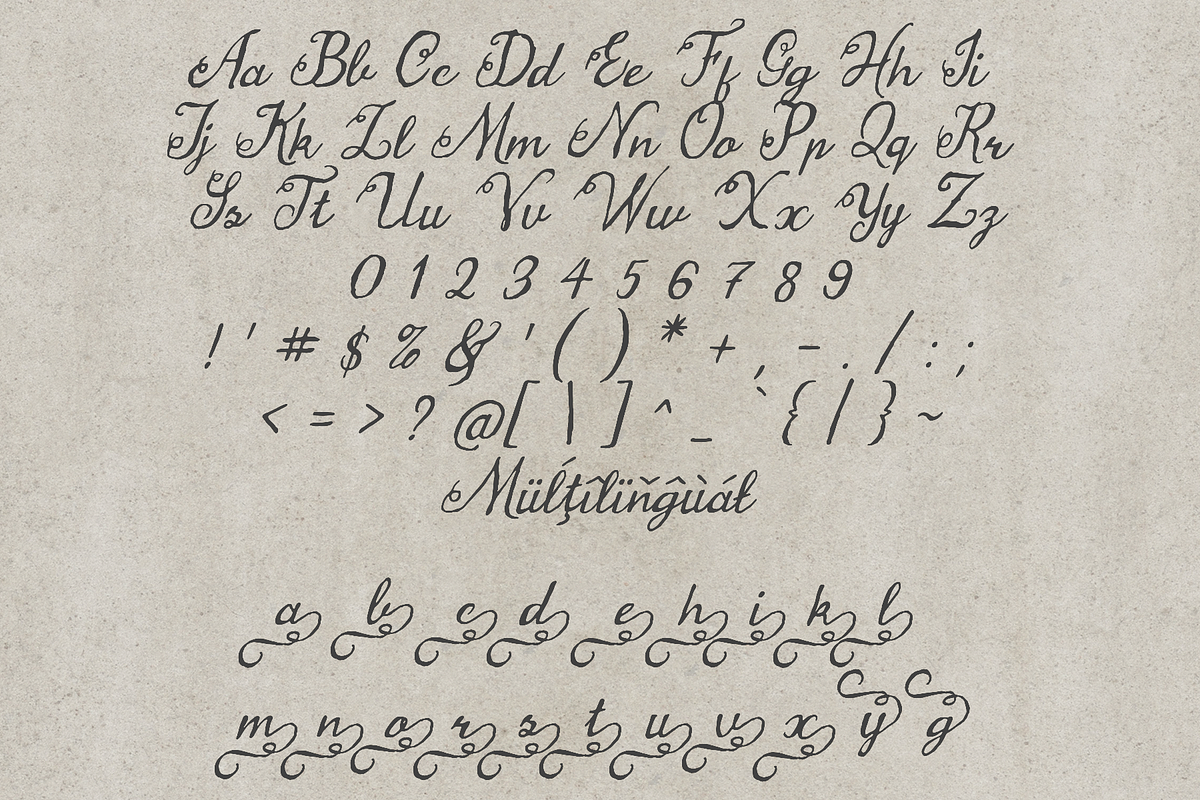 Aa Bb Cc Dd Ee Ff Gg Hh Ii
Jj Kk Ll Mm Nn Oo Pp Qq Rr
Ss Tt Uu Vv Ww Xx Yy Zz
0 1 2 3 4 5 6 7 8 9
! ' # $ % & ' ( ) * + , - . / : ;
< = > ? @ [ \ ] ^ _ ` { | } ~
a b c d e h i k l
m n o r s t u v x y g